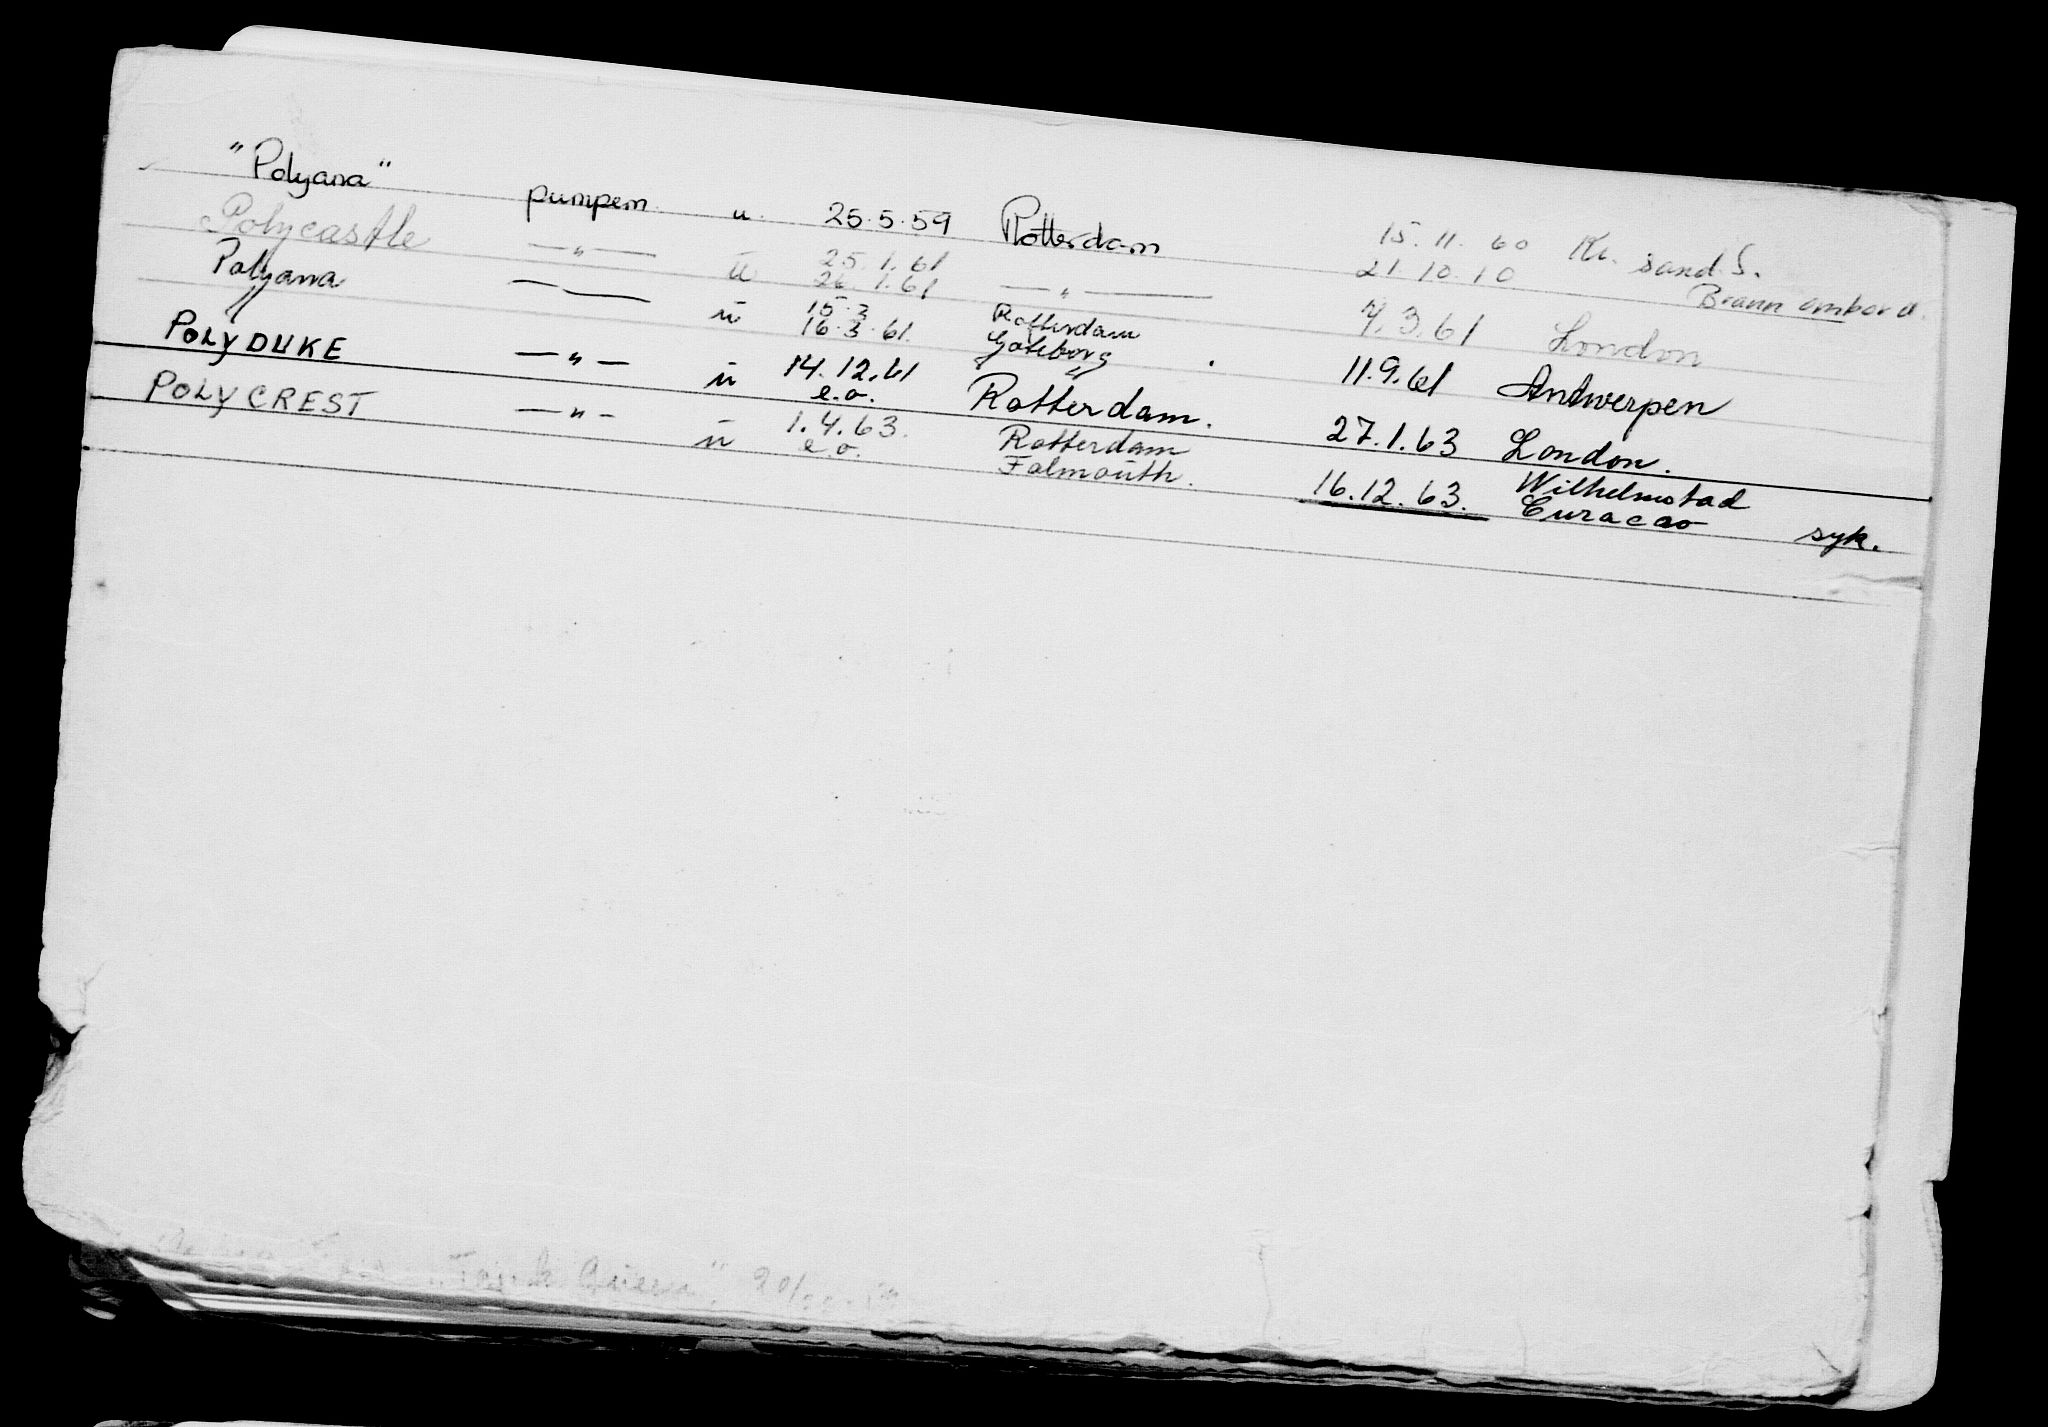 "Polyana" pumpem. u. 25.5.59 Rotterdam 15.11.60 Kr. sand. S.
Polycastle — " — u 25.1.61 — " — 21.10.10 Brann ombord.
26.1.61
Polyana — — u 15.3 Rotterdam 7.3.61 London
16.3.61. Gøteborg
POLYDUKE — " — u 14.12.61 Rotterdam. 11.9.61 Antwerpen
e.o.
POLYCREST — " — u 1.4.63. Rotterdam 27.1.63 London.
e.o. Falmouth.
16.12.63. Wilhelmstad
Curacao syk.